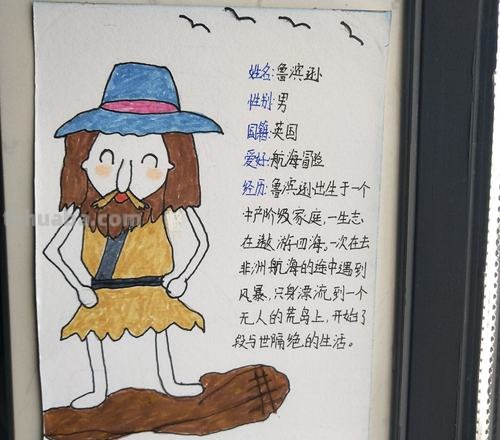 姓名:鲁滨逊
性别:男
国籍:英国
爱好:航海冒险
经历:鲁滨逊出生于一个
中产阶级家庭,一生志
在遨游四海。一次在去
非洲航海的途中遇到
风暴,只身漂流到一个
无人的荒岛上,开始了
段与世隔绝的生活。